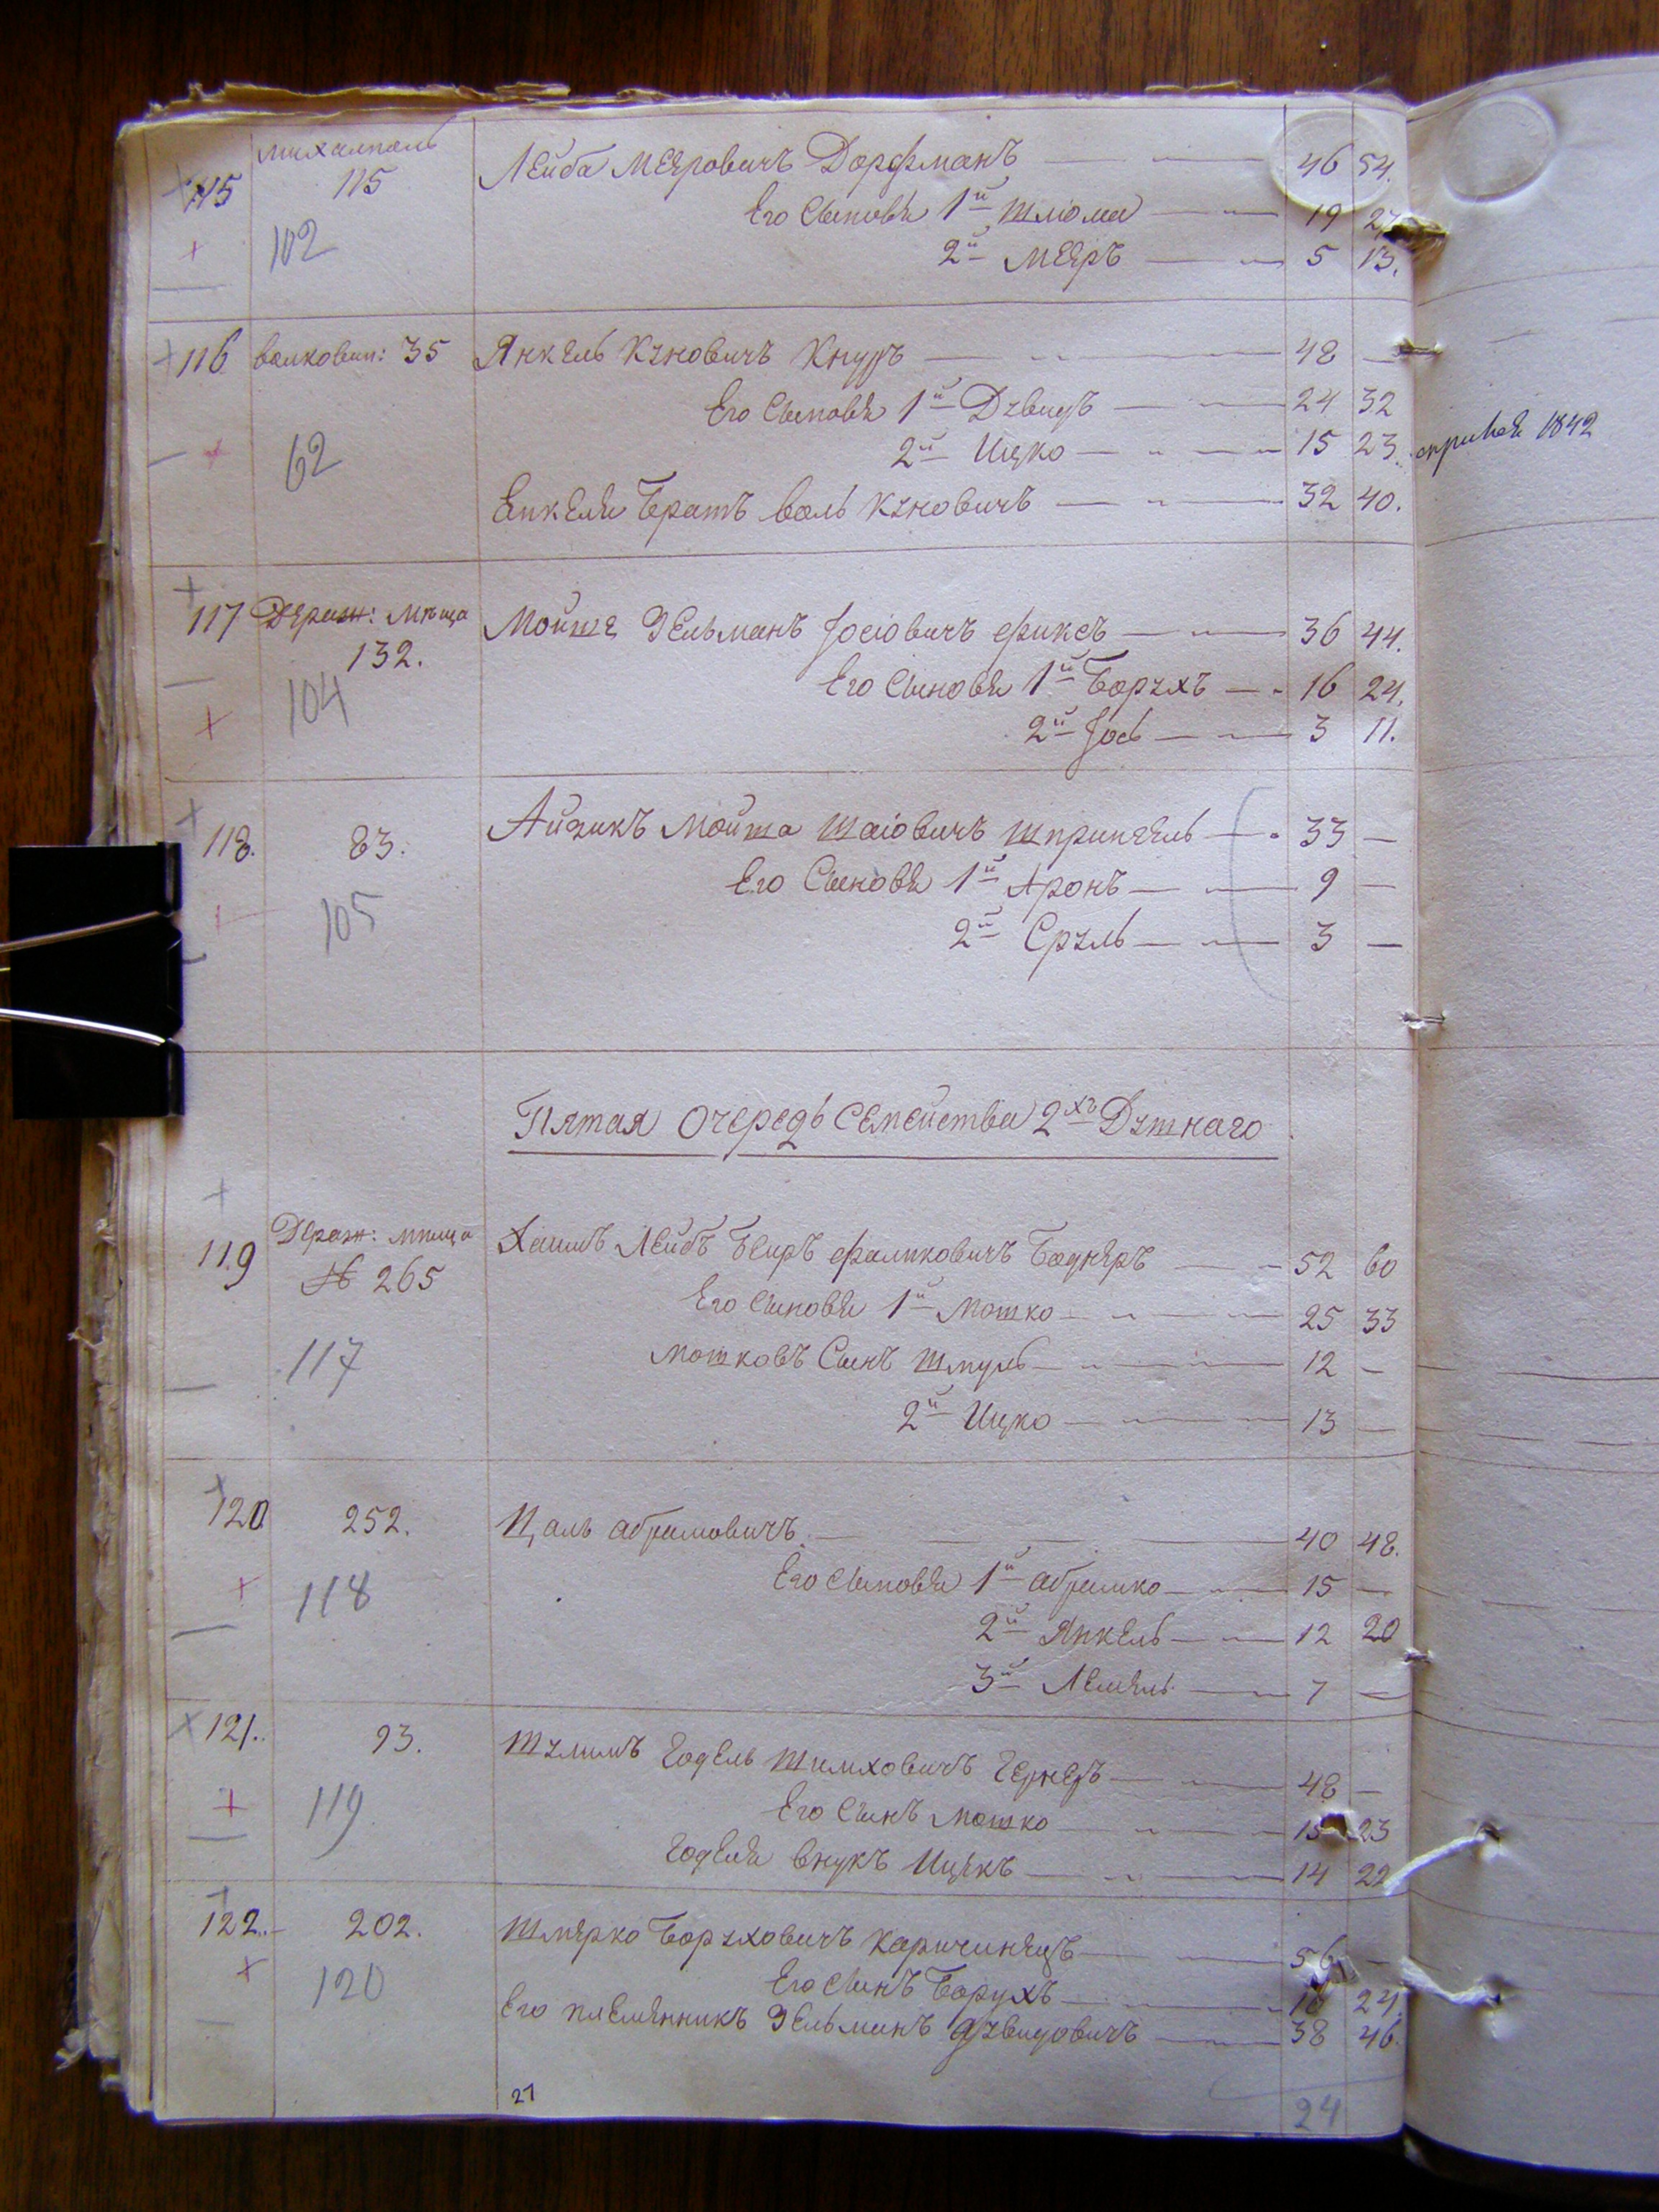 михалполь
115 115 Лейба Меяровичъ Дорфманъ 46 54.
Его Сыновья 1й Шлiома 19 27
102
2й Меяръ 5 13.
116 волковин: 35 Янкель Куновичъ Кнуръ 48 —
Его Сыновья 1й Дувидъ 24 32
62 2й Ицко 15 23. 1842
Енкеля Братъ Воль Куновичъ 32 40.
117 Держ: Мѣща Мойше Зельманъ Іосіовичъ Фиксъ 36 44.
132.
104 Его Сыновья 1й Борухъ 16 24.
2й Іось 3 11.
118. 83. Айзикъ Мойша Шаіовичъ Шпрингель 33 —
105 Его Сыновья 1й Аронъ 9 —
2й Сруль 3 —
Пятая Очередь Семейства 2хъ Дутнаго
119 Дераж: мѣща Хаимъ Лейбъ Беиръ Фаликовичъ Боднеръ 52 60
№ 265
Его Сыновья 1й Мошко 25 33
117 Мошковъ Сынъ Шмуль 12 —
2й Ицко 13 —
120 252. Цаль Абрамовичъ 40 48.
118 Его Сыновья 1й Абрамко 15 —
2й Янкель 12 20
3й Лемель 7 —
121. 93. Шулимъ Годель Шимховичъ Гернеръ 48 —
119 Его Сынъ Мошко 15 23
Годеля внукъ Ицекъ 14 22
122. 202. Шмерко Боруховичъ Каричинецъ 56 —
120 Его Сынъ Борухъ 16 24.
Его племянникъ Зельманъ Дувидовичъ 38 46.
21 24